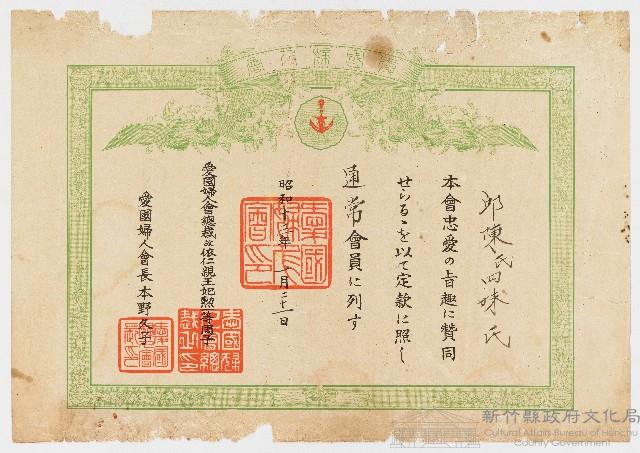 邱陳氏四妹 氏
本會忠愛の旨趣に賛同
せらるゝを以て定款に照し
通常會員に列す
昭和十 年 一月二十一日
愛國婦人會總裁故依仁親王妃勲一等周子
愛國婦人會長 本野久子
新竹縣政府文化局
Cultural Affairs Bureau of Hsinchu
County Government